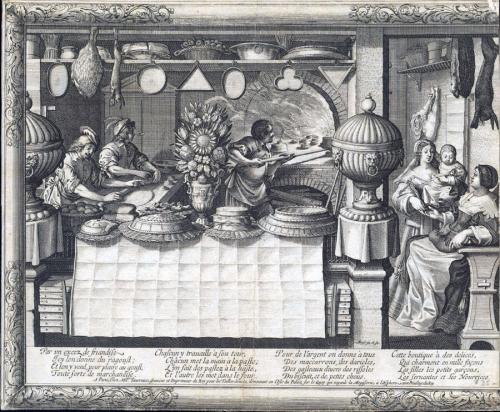 Par un excez de friandise
Icy l'on donne du ragoust:
Et l'on y vend, pour plaire au goust,
Toute sorte de marchandise.
Chascun y travaille à son tour;
Chacun met la main à la paste;
L'on fait des pastez à la haste,
Et l'autre les met dans le four.
Pour de l'argent on donne à tous
Des maccarrons, des darioles,
Des gasteaux divers des rissoles
Du biscuit, et de petits choux.
Cette boutique a des delices,
Qui charment en mille façons
Les filles les petits garçons,
Les servantes et les Nourrices.
A Paris, Chez